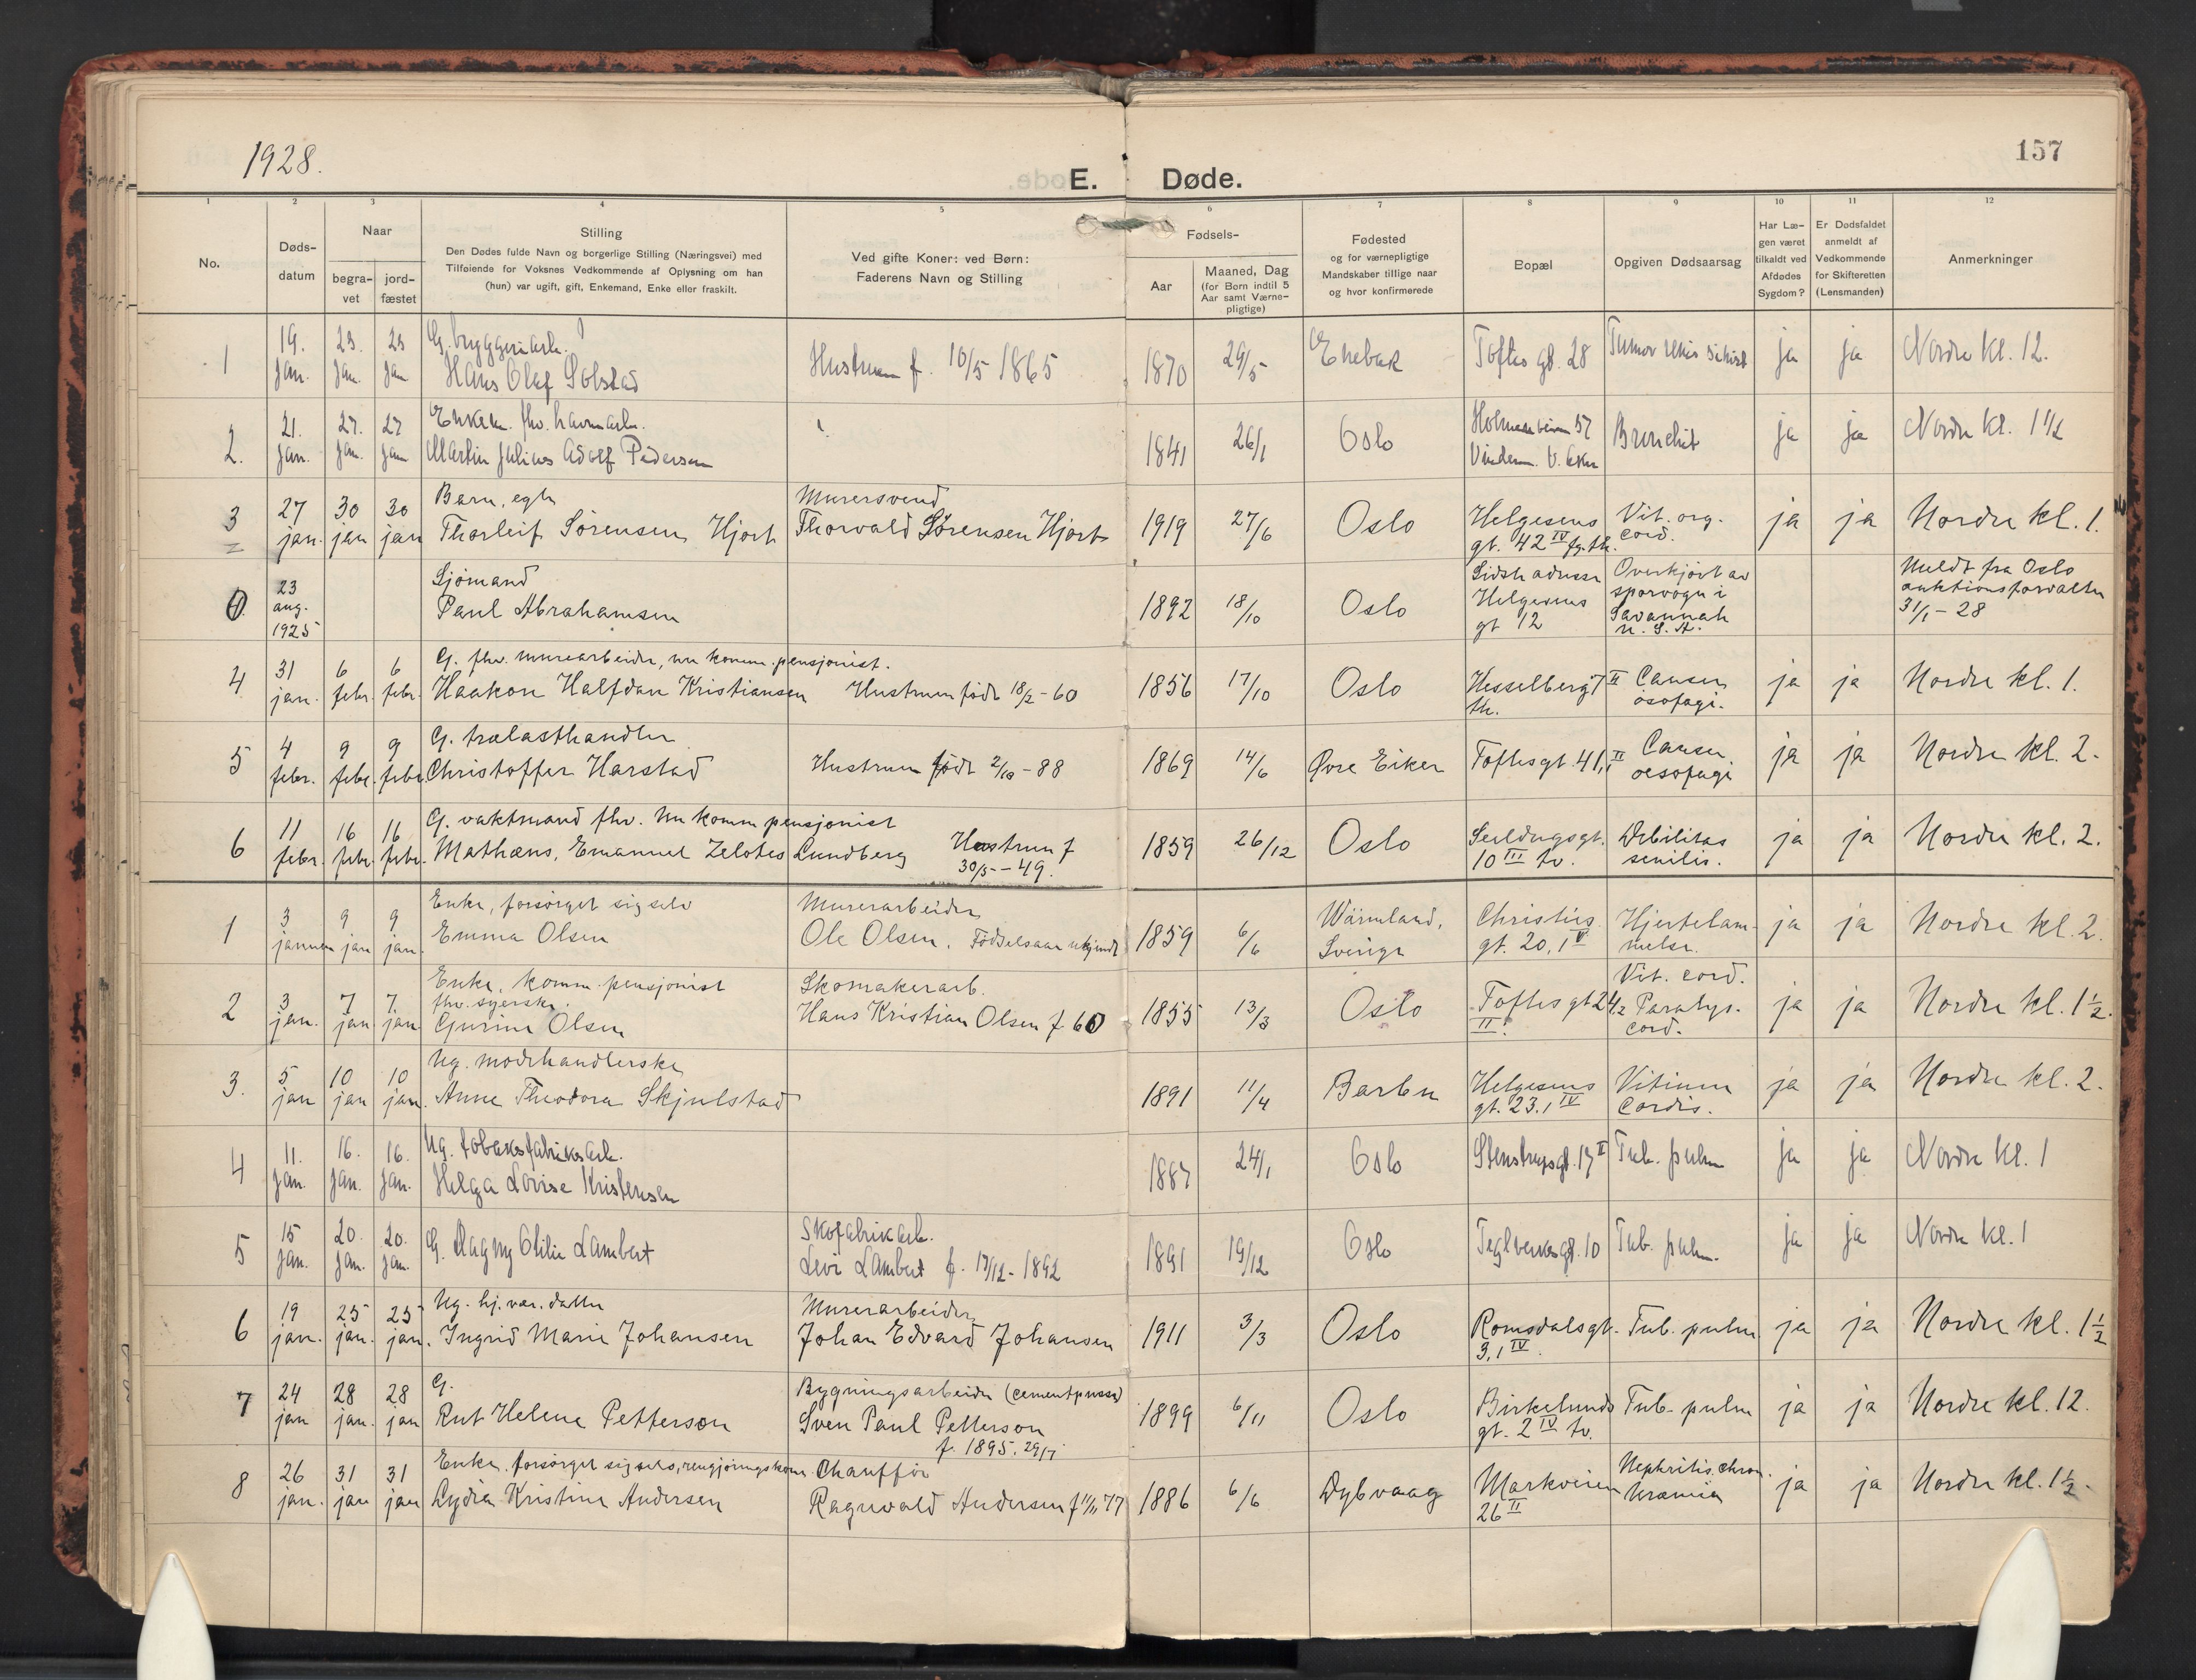 1928.
157
E. Døde.
1 2 3 4 5 6 7 8 9 10 11 12
No.
Døds-
datum
Naar
begra-
vet
jord-
fæstet
Stilling
Den Dødes fulde Navn og borgerlige Stilling (Næringsvei) med
Tilføiende for Voksnes Vedkommende af Oplysning om han
(hun) var ugift, gift, Enkemand, Enke eller fraskilt.
Ved gifte Koner: ved Børn:
Faderens Navn og Stilling
Fødsels-
Aar
Maaned, Dag
(for Børn indtil 5
Aar samt Værne-
pligtige)
Fødested
og for værnepligtige
Mandskaber tillige naar
og hvor konfirmerede
Bopæl
Opgiven Dødsaarsag
Har Læ-
gen været
tilkaldt ved
Afdødes
Sygdom?
Er Dødsfaldet
anmeldt af
Vedkommende
for Skifteretten
(Lensmanden)
Anmerkninger
1 19. jan. 23. jan. 23 jan
G. bryggeriarb.
Hans Olaf Solstad
Hustruen f. 10/5 1865
1870 29/5 Enebak Toftes gt. 28 Tumor ja ja Nordre kl. 12.
2. 21. jan. 27. jan. 27 jan
Enkem. fhv. havnearb.
Martin Julius Adolf Pedersen
1841 26/1 Oslo
Holmenveien 57
Vinderen. V. Aker
Bronchit ja ja Nordre kl. 1 1/2
3 27 jan. 30 jan 30 jan
Barn, egte
Thorleif Sørensen Hjort
Murersvend
Thorvald Sørensen Hjort
1919 27/6 Oslo
Helgesens
gt. 42 IV fg. th.
Vit. org.
cord.
ja ja Nordre kl. 1.
0. 23 aug. 1925
Sjömand
Paul Abrahamsen
1892 18/10 Oslo
Sidste adresse
Helgesens
gt 12
Overkjört av
sporvogn i
Savannah
U. S. A.
Meldt fra Oslo
auktionsforvalter
31/1 - 28
4 31 jan. 6 febr. 6 febr.
G. fhv. murearbeider, nu komm. pensjonist.
Haakon Halfdan Kristiansen
Hustruen født 18/2 - 60
1856 17/10 Oslo
Hesselbergs 7 II
th.
Cancer
øsofagi.
ja ja Nordre kl. 1.
5 4 febr. 9 febr. 9 febr.
G. trælasthandler
Christoffer Harstad
Hustruen født 2/10 - 88
1869 14/6 Øvre Eiker Toftesgt. 41, II
Cancer
oesofagi
ja ja Nordre kl. 2.
6 11 febr. 16 febr. 16 febr.
G. vaktmand fhv. nu komm pensjonist
Mathæus, Emanuel Zelotes Lundberg
Hustruen f
30/5 - 49.
1859 26/12 Oslo
Seildugsgt.
10 III tv.
Debilitas
senilis.
ja ja Nordre kl. 2.
1 3 januar 9 jan 9 jan.
Enke, forsørget sig selv
Emma Olsen
Murerarbeider
Ole Olsen. Fødselsaar ukjendt
1859 6/6
Wärmland,
Sverige
Christies
gt. 20, 1 V
Hjertelam-
melse.
ja ja Nordre kl. 2.
2 3 jan. 7 jan 7. jan.
Enke, komm. pensjonist
fhv. syerske.
Gurine Olsen
Skomakerarb.
Hans Kristian Olsen f. 60
1855 13/3 Oslo
Toftesgt 24,2
II.
Vit. cord.
Paralys.
cord.
ja ja Nordre kl. 1 1/2.
3. 5 jan 10 jan 10 jan.
Ug. motehandlerske
Anne Theodora Skjulstad
1891 11/4 Barbu
Helgesens
gt. 23, 1 IV
Vitium
Cordis.
ja ja Nordre kl. 2.
4 11. jan. 16. jan. 16. jan.
Ug. tobaksfabrikarb.
Helga Lovise Kristensen
1887 24/1 Oslo Stenstrupsgt. 17 II Tub. pulm ja ja Nordre kl. 1
5 15 jan. 20. jan. 20. jan.
G. Dagny Otilie Lambert
Skofabrikarb.
Levi Lambert f. 17/12 - 1892
1891 19/12 Oslo Teglverksgt. 10 Tub. pulm. ja ja Nordre kl. 1
6 19 jan. 25 jan. 25 jan.
Ug. hj. vær. datter
Ingrid Marie Johansen
Murerarbeider
Johan Edvard Johansen
1911 3/3 Oslo
Romsdalsgt.
3, 1 IV.
Tub. pulm ja ja Nordre kl. 1 1/2
7 24 jan 28 jan. 28 jan
G.
Rut Helene Petterson
Bygningsarbeider (cementpusser)
Sven Paul Petterson
f. 1895. 29/7
1899 6/11 Oslo
Birkelunds
gt. 2 IV tv.
Tub. pulm ja ja Nordre kl. 12.
8 26 jan. 31 jan 31 jan
Enke. forsørget sig selv, rengjøringskone.
Lydia Kristine Andersen
Chauffør
Ragnvald Andersen f 11/11 77
1886 6/6 Dybvaag
Markveien
26 II
Nephritis chron.
Uræmia
ja ja Nordre kl. 1 1/2.